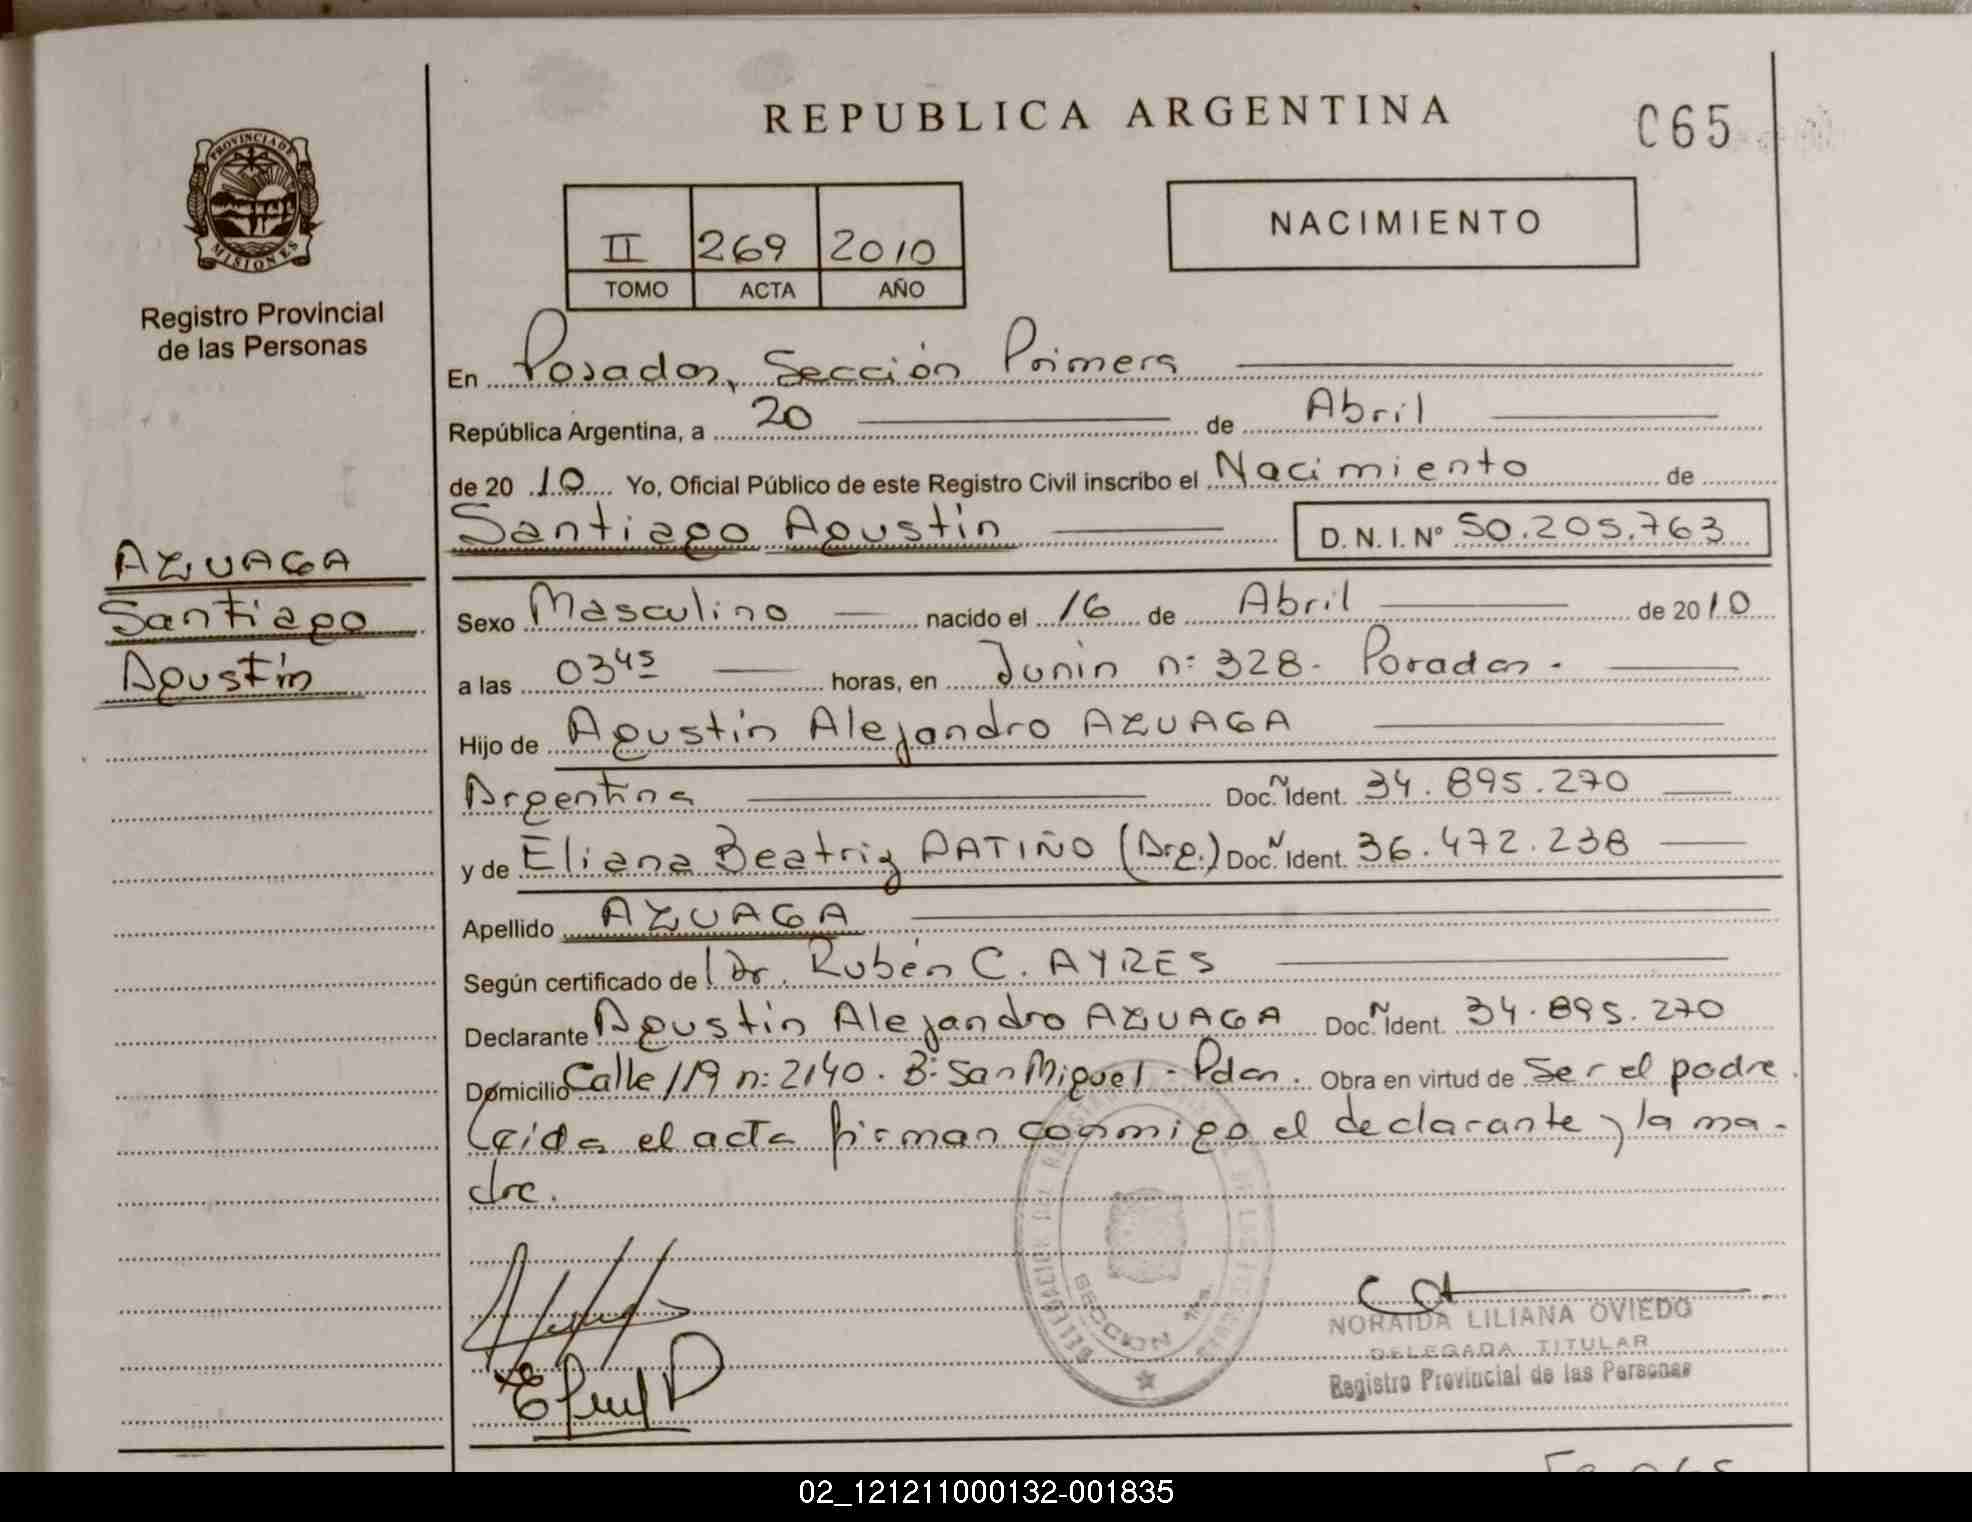 REPUBLICA ARGENTINA
065
PROVINCIA DE
MISIONES
Registro Provincial
de las Personas
II 269 2010
TOMO ACTA AÑO
NACIMIENTO
En Posadas, Sección Primera
República Argentina, a 20 de Abril
de 2010 Yo, Oficial Público de este Registro Civil inscribo el Nacimiento de
Santiago Agustín D. N. I. Nº 50.205.763
AZUAGA
Santiago
Agustín
Sexo Masculino nacido el 16 de Abril de 2010
a las 03 45 horas, en Junín nº 328. Posadas.
Hijo de Agustín Alejandro AZUAGA
Argentina Doc. Nº Ident. 34.895.270
y de Eliana Beatriz PATIÑO (Arg.) Doc. Nº Ident. 36.472.238
Apellido AZUAGA
Según certificado de Dr. Rubén C. AYRES
Declarante Agustín Alejandro AZUAGA Doc. Nº Ident. 34.895.270
Domicilio Calle 119 nº 2140. Bº San Miguel - Pdas. Obra en virtud de Ser el padre.
Leída el acta firman conmigo el declarante y la ma-
dre.
SECCION 1ra.
NORAIDA LILIANA OVIEDO
DELEGADA TITULAR
Registro Provincial de las Personas
02_121211000132-001835